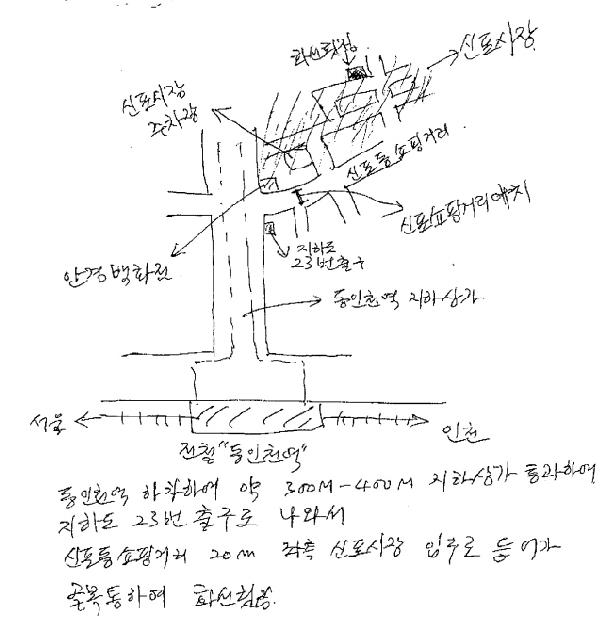 화선횟집
신포시장
신포시장
주차장
신포동 쇼핑거리
신포쇼핑거리 아치
안경백화점
지하도
23번출구
동인천역 지하상가
서울
인천
전철 "동인천역"
동인천역 하차하여 약 300M-400M 지하상가 통과하여
지하도 23번 출구로 나와서
신포동쇼핑거리 20m 좌측 신포시장 입구로 들어가
골목통하여 화선횟집.